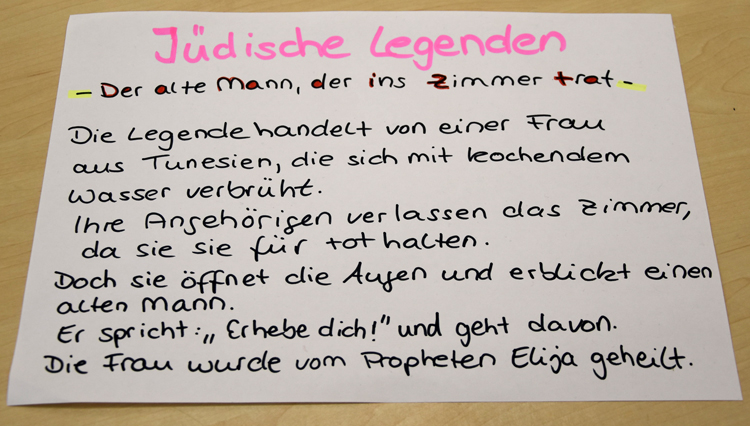 Jüdische Legenden
- Der alte Mann, der ins Zimmer trat -
Die Legende handelt von einer Frau
aus Tunesien, die sich mit kochendem
Wasser verbrüht.
Ihre Angehörigen verlassen das Zimmer,
da sie sie für tot halten.
Doch sie öffnet die Augen und erblickt einen
alten Mann.
Er spricht: „Erhebe dich!" und geht davon.
Die Frau wurde vom Propheten Elija geheilt.